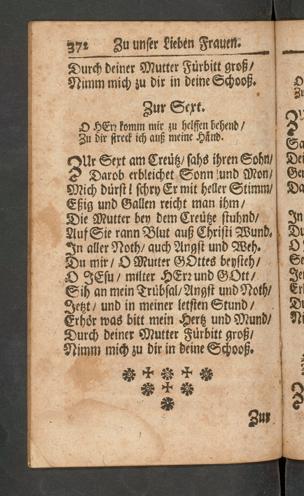 372 Zu unser Lieben Frauen.
Durch deiner Mutter Fürbitt groß/
Nimm mich zu dir in deine Schooß.
Zur Sext.
O HErr komm mir zu helffen behend/
Zu dir streck ich auß meine Händ.
ZUr Sext am Creütz/ sahs ihren Sohn/
Darob erbleichet Sonn und Mon/
Mich dürst! schry Er mit heller Stimm/
Eßig und Gallen reicht man ihm/
Die Mutter bey dem Creütze stuhnd/
Auf Sie rann Blut auß Christi Wund.
In aller Noth/ auch Angst und Weh.
Du mir/ O Mutter GOttes beysteh/
O JEsu/ milter HErz und GOtt/
Sih an mein Trübsal/ Angst und Noth/
Jetzt/ und in meiner letsten Stund/
Erhör was bitt mein Hertz und Mund/
Durch deiner Mutter Fürbitt groß/
Nimm mich zu dir in deine Schooß.
Zur